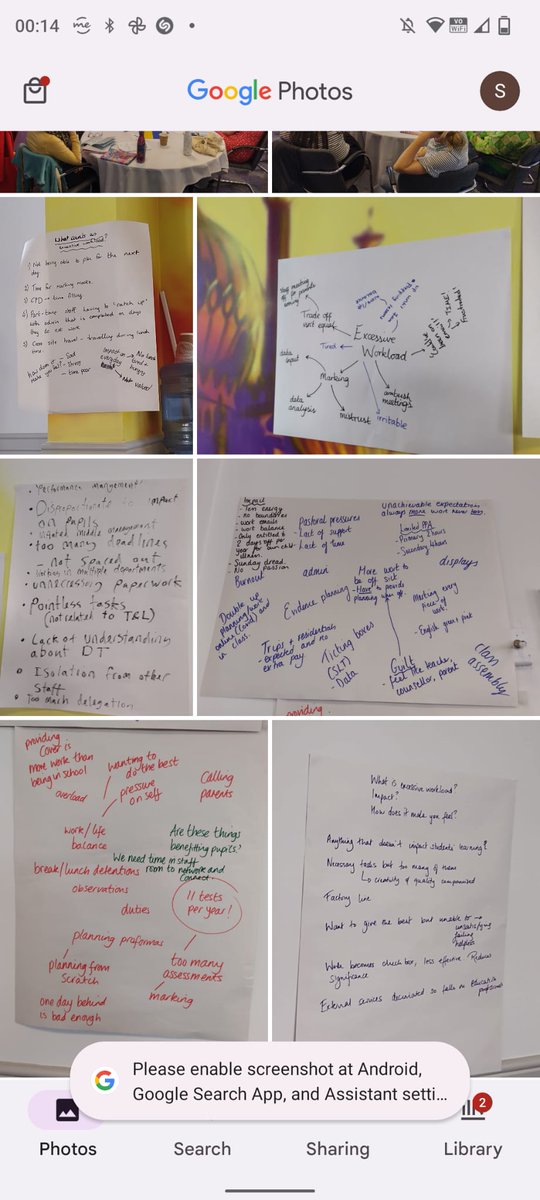 00:14
me
VO
WiFi
Google Photos
S
What counts as
excessive workload?
1) Not being able to plan for the next
day.
2) Time for marking mocks.
3) CPD → time filling
4) Part-time staff having to 'catch up'
with admin that is completed on days
they do not work
5) Cross site travel - travelling during lunch
time.
how does it
make you feel?
- Sad
- stressed
- time poor
impact on
everyday
No lunch
tired +
hungry
Not
Valued!
Trade off
isn't equal
Excessive
Workload
Tired
data
input
Marking
data
analysis
mistrust
irritable
ambush
meetings
• Performance Management
• Disproportionate to impact
on pupils
• too many deadlines
- not spaced out
working in multiple departments
• unnecessary paperwork
• Pointless tasks
(not related to T&L)
• Lack of understanding
about DT
• Isolation from other
staff
• Too much delegation
Impact
- Tem energy
- no boundaries
- work emails
- work balance
- Only entitled to
2 days off per
year for our child
illness.
- Sunday dread.
No passion
Burnout
Pastoral pressures
- Lack of support
- Lack of time
admin
unachievable expectations
always more work never less.
Limited PPA
- Primary 2 hours
- Secondary 4 hours
More work to
be off sick
- Have to provide
planning when off.
displays
Evidence planning
Double up
planning/work
online (covid) and
in class.
Trips + residentials
- expected and no
extra pay
Ticking boxes
(SLT)
- Data
Meeting every
piece of
work!
- English green + pink
Guilt
- feel like teacher,
counsellor, parent
class
assembly
providing
providing
cover is
more work than
being in school
wanting to
do the best
overload
pressure
on self
Calling
parents
work/life
balance
Are these things
benefitting pupils?
We need time in staff
room to network and
connect.
break/lunch detentions
observations
11 tests
per year!
duties
planning proformas
planning from
scratch
too many
assessments
marking
one day behind
is bad enough
What is excessive workload?
Impact?
How does it make you feel?
Anything that doesn't impact students learning?
Necessary tasks but too many of them
↳ creativity & quality compromised
Factory line
Want to give the best but unable to →
unsatisfying
failing
helpless
Work becomes check box, less effective Reduces
significance
External services decimated so falls on education
professionals
Please enable screenshot at Android,
Google Search App, and Assistant setti...
2
Photos
Search
Sharing
Library